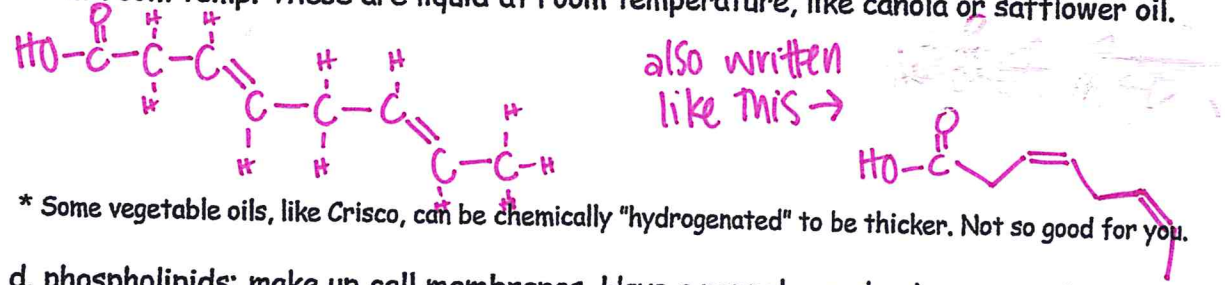 room temp. These are liquid at room temperature, like canola or safflower oil.
O H H
HO-C-C-C H H
H C-C-C H
H H C-C-H
H H
also written
like this →
O
HO-C
* Some vegetable oils, like Crisco, can be chemically "hydrogenated" to be thicker. Not so good for you.
d. phospholipids: make up cell membranes. Have